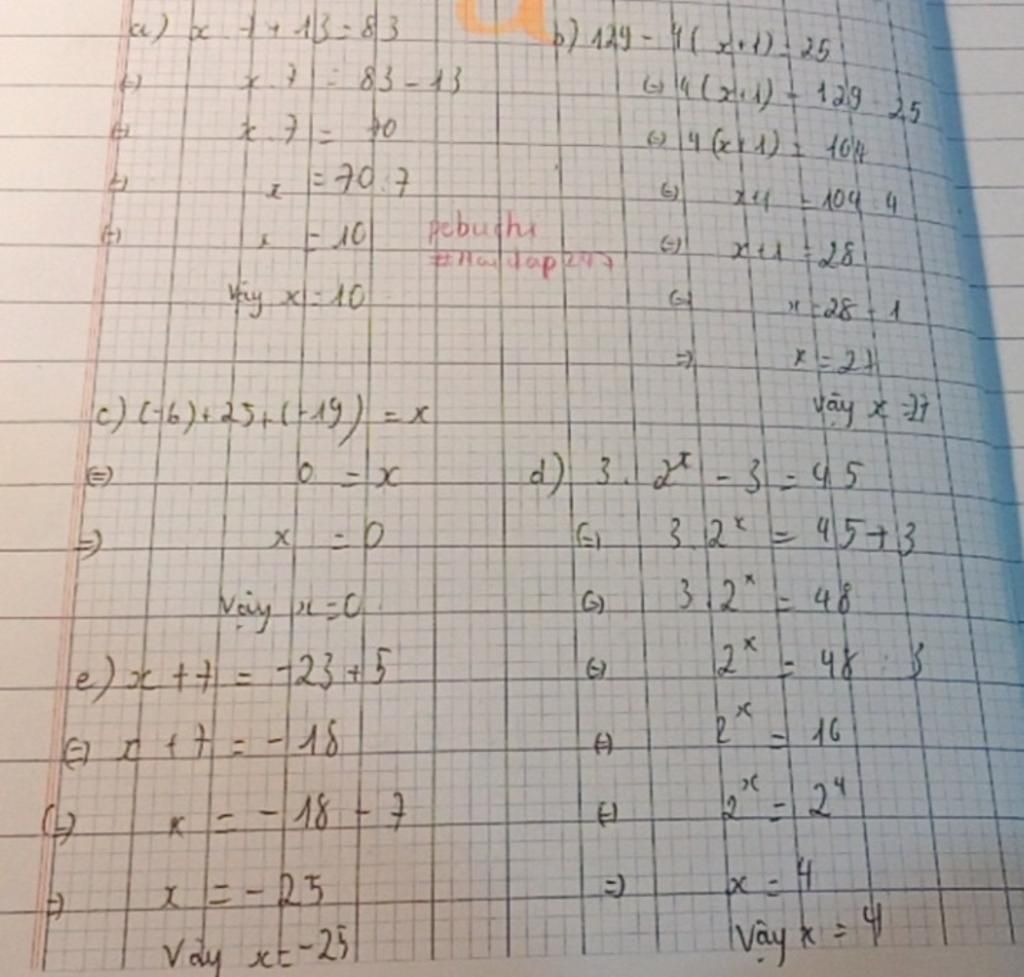 a) x . 7 + 13 = 83
(=) x . 7 = 83 - 13
(=) x . 7 = 70
(=) x = 70 : 7
(=) x = 10
Vậy x = 10
b) 129 - 4(x+1) = 25
(=) 4(x+1) = 129 - 25
(=) 4(x+1) = 104
(=) x+1 = 104 : 4
(=) x+1 = 28
(=) x = 28 - 1
=) x = 27
Vậy x = 27
pcbuchi
#Hoidap247
c) (-6) + 25 + (-19) = x
(=) 0 = x
=) x = 0
Vậy x = 0
d) 3 . 2ˣ - 3 = 45
(=) 3 . 2ˣ = 45 + 3
(=) 3 . 2ˣ = 48
(=) 2ˣ = 48 : 3
(=) 2ˣ = 16
(=) 2ˣ = 2⁴
=) x = 4
Vậy x = 4
e) x + 7 = -23 + 5
(=) x + 7 = -18
(=) x = -18 - 7
=) x = -25
Vậy x = -25